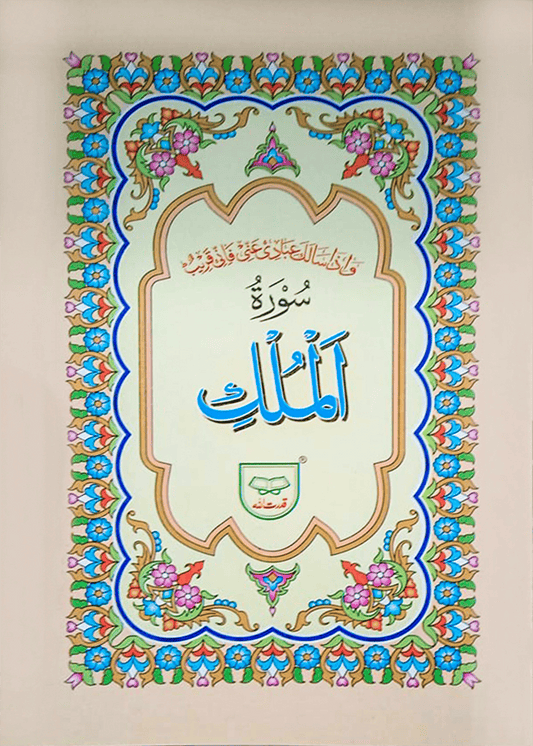 وَاِذَا سَاَلَكَ عِبَادِیْ عَنِّیْ فَاِنِّیْ قَرِیْبٌ
سُوْرَةُ
اَلْمُلْكِ
®
قدرت اللہ